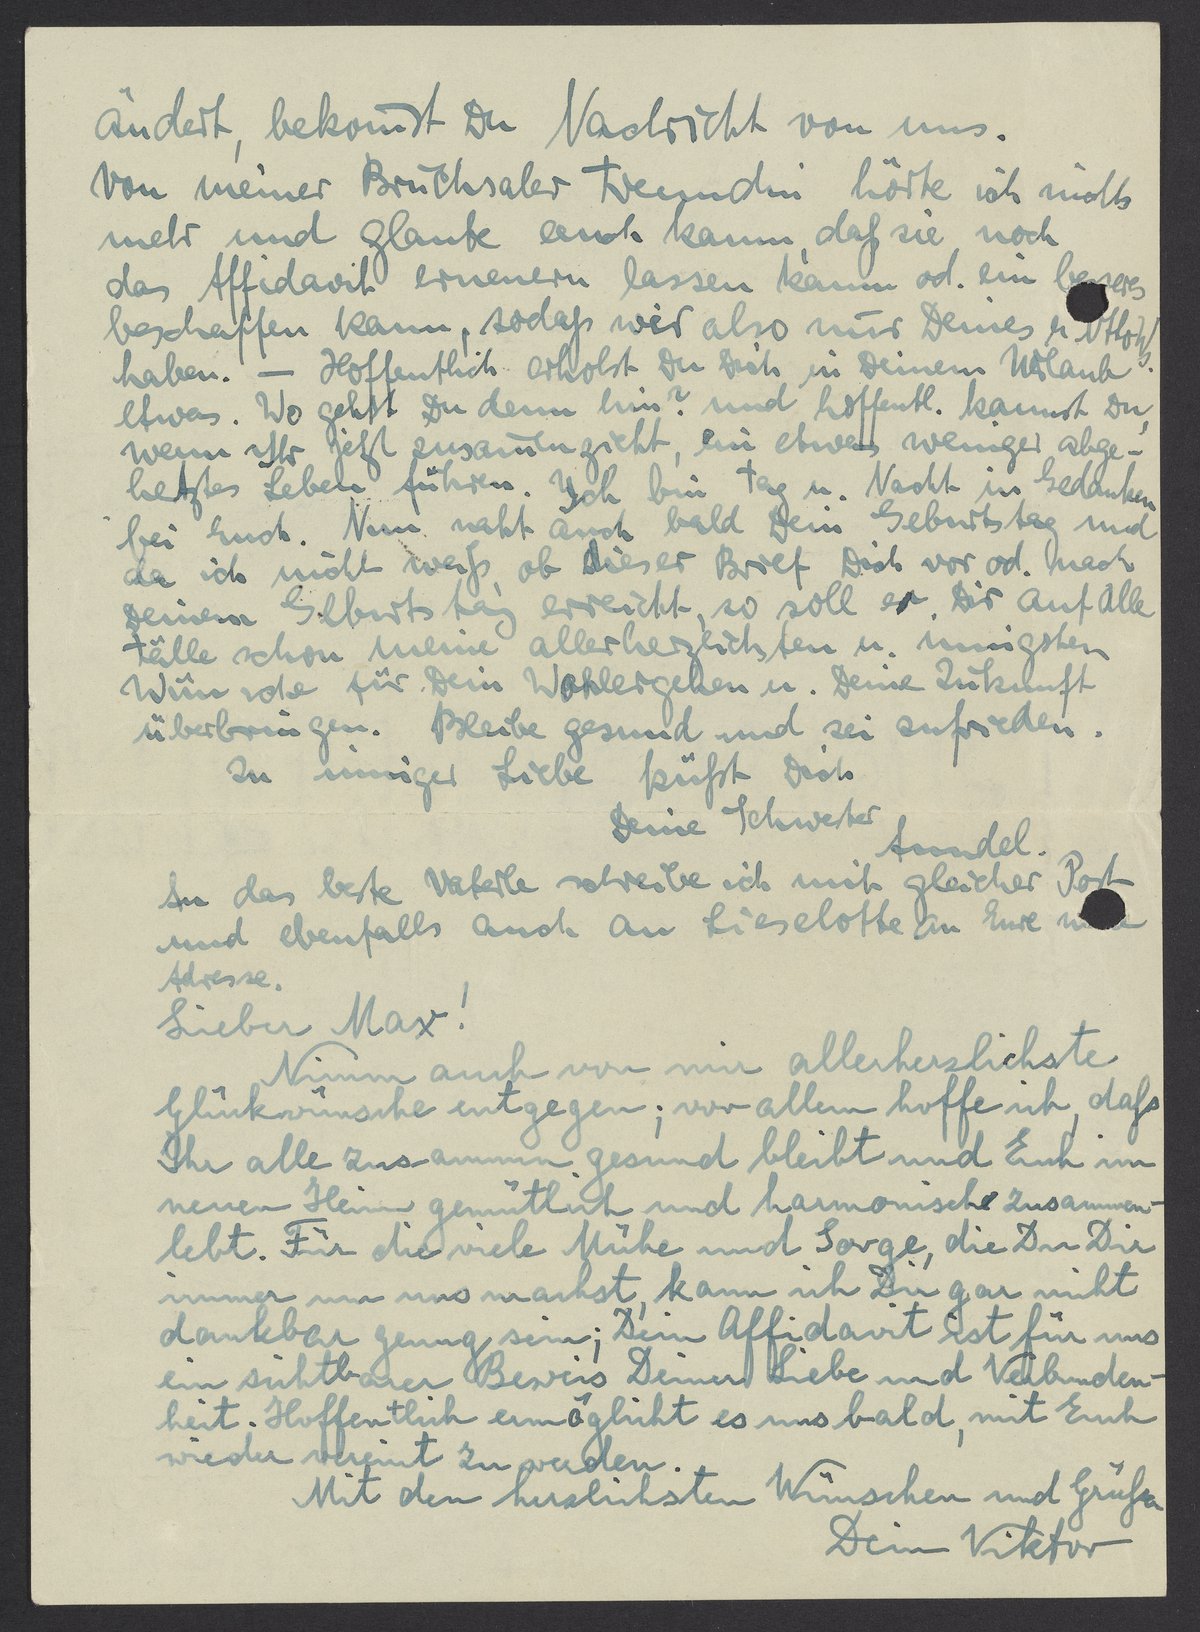 ändert, bekom̅st Du Nachricht von uns.
Von meiner Bruchsaler Freundin hörte ich nichts
mehr und glaube auch kaum, daß sie noch
das Affidavit erneuern lassen kann od. ein besseres
beschaffen kann, sodaß wir also nur Deines u.
haben. — Hoffentlich erholst Du Dich in Deinem Urlaub
etwas. Wo gehst Du denn hin? und hoffentl. kannst Du,
wenn Ihr jetzt zusam̅enzieht, ein etwas weniger abge-
hetztes Leben führen. Ich bin Tag u. Nacht in Gedanken
bei Euch. Nun naht auch bald Dein Geburtstag und
da ich nicht weiß, ob dieser Brief Dich vor od. nach
Deinem Geburtstag erreicht, so soll er Dir auf alle
Fälle schon meine allerherzlichsten u. innigsten
Wünsche für Dein Wohlergehen u. Deine Zukunft
überbringen. Bleibe gesund und sei zufrieden.
In inniger Liebe küßt Dich
Deine Schwester
Anndel.
An das beste Vaterle schreibe ich mit gleicher Post
und ebenfalls auch an Lieselotte an Eure
Adresse.
Lieber Max!
Nimm auch von mir allerherzlichste
Glückwünsche entgegen; vor allem hoffe ich, daß
Ihr alle zusammen gesund bleibt und Euch im
neuen Heim gemütlich und harmonisch zusammen-
lebt. Für die viele Mühe und Sorge, die Du Dir
immer um uns machst, kann ich Dir gar nicht
dankbar genug sein; Dein Affidavit ist für uns
ein sichtbarer Beweis Deiner Liebe und Verbunden-
heit. Hoffentlich ermöglicht es uns bald, mit Euch
wieder vereint zu werden.
Mit den herzlichsten Wünschen und Grüßen
Dein Viktor